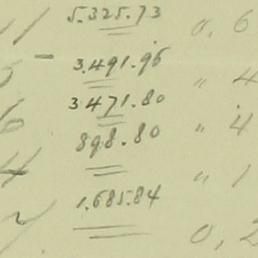 5.325.73 0,6
— 3.491.96 " 4
6 3471.80 " 4
4 898.80 " 1
1.685.84 0,2